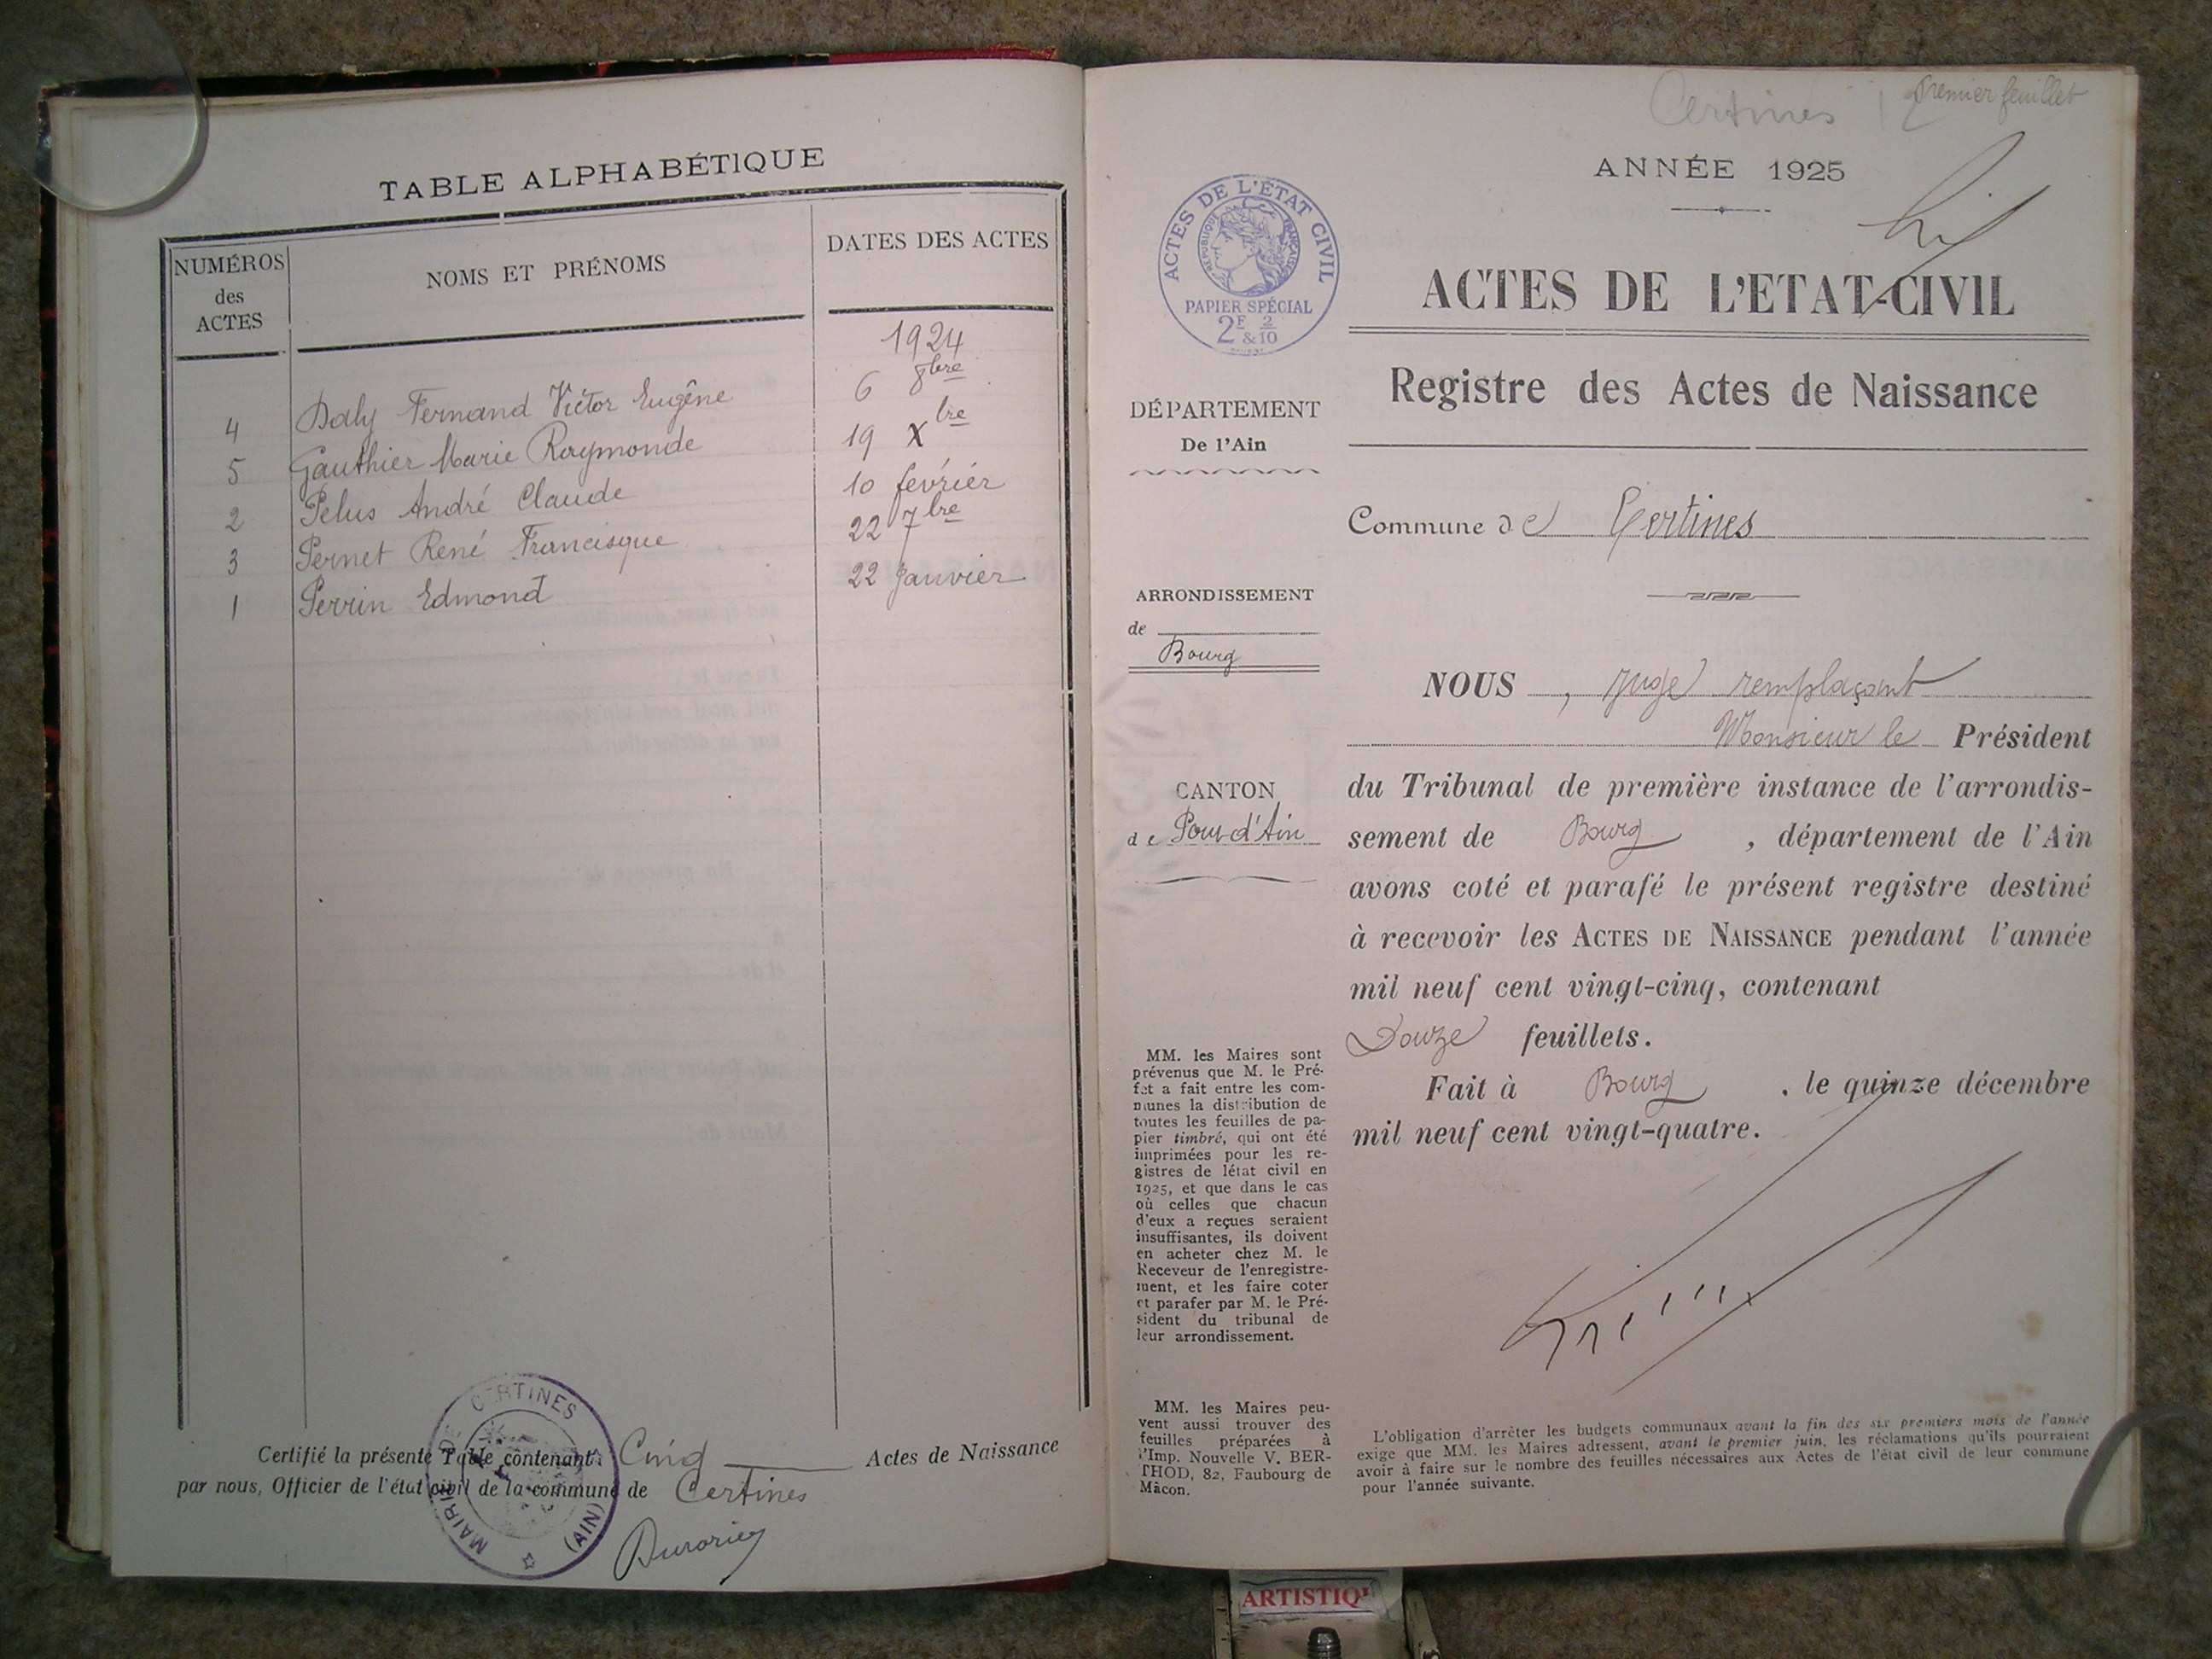 TABLE ALPHABÉTIQUE
NUMÉROS
des
ACTES
NOMS ET PRÉNOMS
DATES DES ACTES
1924
4 Daly Fernand Victor Eugêne 6 8bre
5 Gauthier Marie Raymonde 19 Xbre
2 Pelus André Claude 10 février
3 Pernet René Francisque 22 7bre
1 Perrin Edmond 22 Janvier
Certifié la présente Table contenant: Cinq Actes de Naissance
par nous, Officier de l'état civil de la commune de Certines
MAIRIE DE CERTINES
(AIN)
Certines 12
premier feuillet
ANNÉE 1925
ACTES DE L'ÉTAT CIVIL
RÉPUBLIQUE FRANÇAISE
PAPIER SPÉCIAL
2F & 2/10
ACTES DE L'ETAT-CIVIL
Registre des Actes de Naissance
DÉPARTEMENT
De l'Ain
Commune de Certines
ARRONDISSEMENT
de
Bourg
CANTON
de Pont d'Ain
NOUS , Juge remplaçant
Monsieur le Président
du Tribunal de première instance de l'arrondis-
sement de Bourg , département de l'Ain
avons coté et parafé le présent registre destiné
à recevoir les ACTES DE NAISSANCE pendant l'année
mil neuf cent vingt-cinq, contenant
Douze feuillets.
Fait à Bourg , le quinze décembre
mil neuf cent vingt-quatre.
MM. les Maires sont
prévenus que M. le Pré-
fet a fait entre les com-
munes la distribution de
toutes les feuilles de pa-
pier timbré, qui ont été
imprimées pour les re-
gistres de létat civil en
1925, et que dans le cas
où celles que chacun
d'eux a reçues seraient
insuffisantes, ils doivent
en acheter chez M. le
Receveur de l'enregistre-
ment, et les faire coter
et parafer par M. le Pré-
sident du tribunal de
leur arrondissement.
MM. les Maires peu-
vent aussi trouver des
feuilles préparées à
l'Imp. Nouvelle V. BER-
THOD, 82, Faubourg de
Mâcon.
L'obligation d'arrêter les budgets communaux avant la fin des six premiers mois de l'année
exige que MM. les Maires adressent, avant le premier juin, les réclamations qu'ils pourraient
avoir à faire sur le nombre des feuilles nécessaires aux Actes de l'état civil de leur commune
pour l'année suivante.
ARTISTIQ